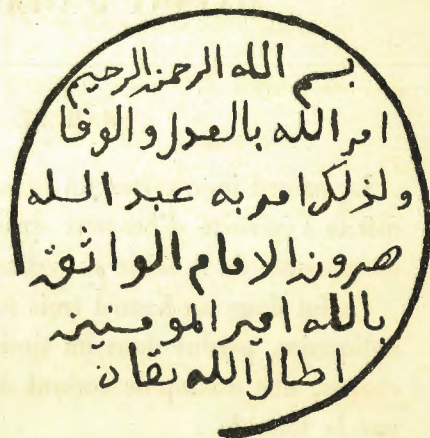 بسم الله الرحمن الرحيم
امر الله بالعدل والوفا
ولذلك امر به عبد الله
هرون الامام الواثق
بالله امير المومنين
اطال الله بقاه